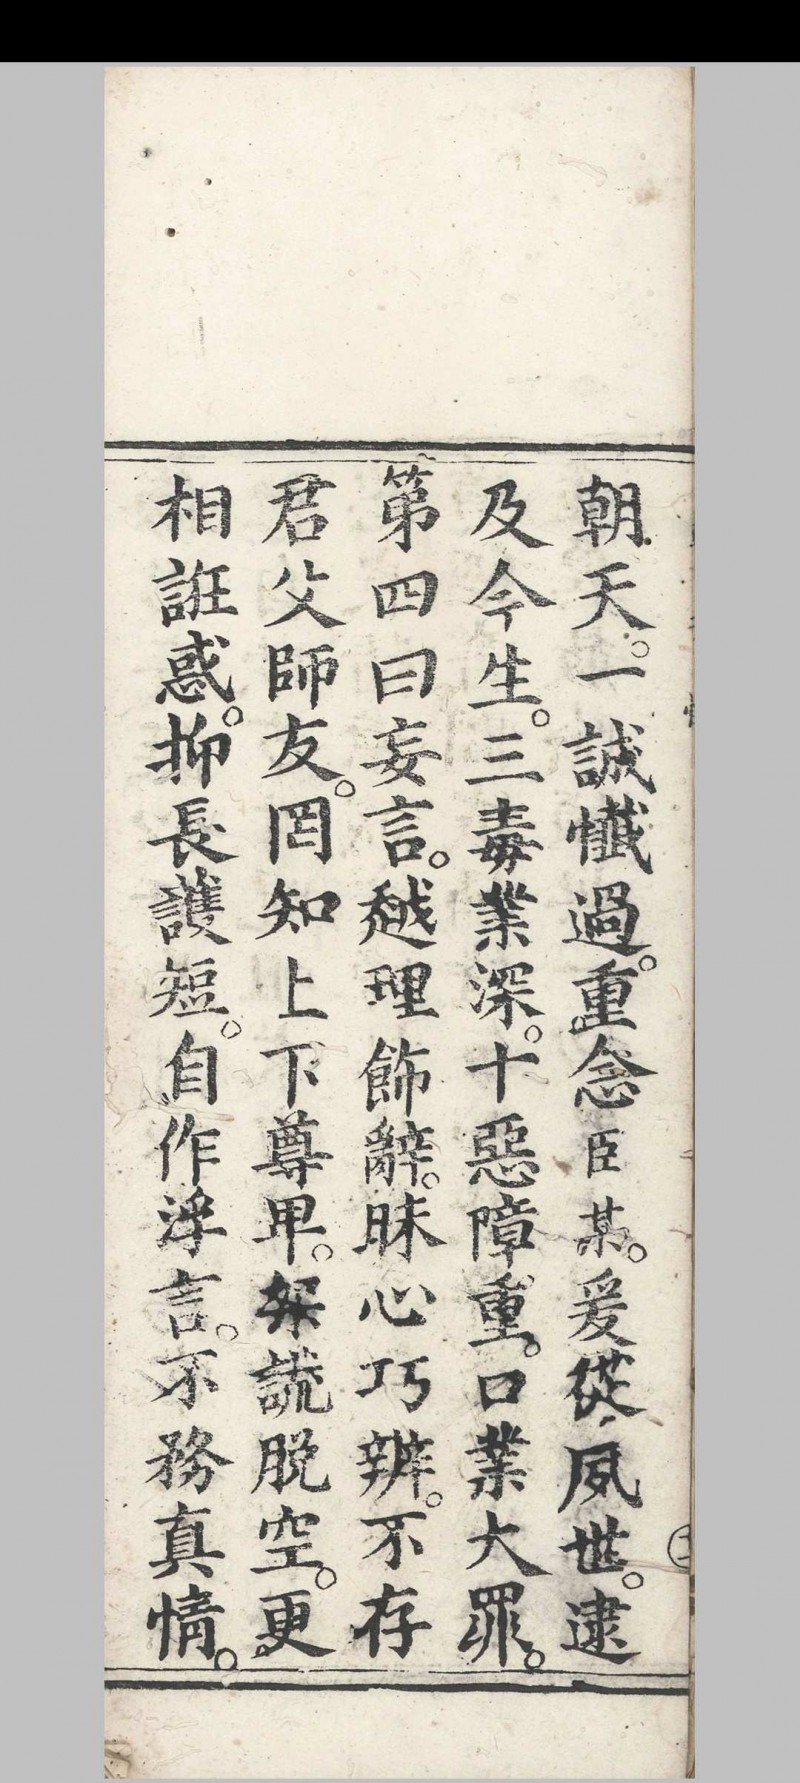 朝天。一誠懺過。重念臣某。爰從夙世。逮
及今生。三毒業深。十惡障重。口業大罪。
第四曰妄言。越理飾辭。昧心巧辨。不存
君父師友。罔知上下尊卑。架謊脫空。更
相誑惑。抑長護短。自作浮言。不務真情。